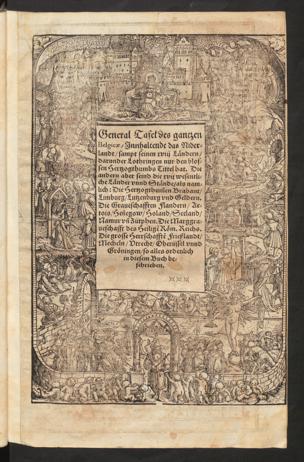 General Tafel des gantzen
Belgicæ / Innhaltende das Nider-
landt / sampt seinen xvij Ländern /
darunder Lothringen nur den blos-
sen Hertzogthumbs Tittel hat. Die
andern aber seind die xvij wesentli-
che Länder vnnd Stände / als nam-
lich: Die Hertzogthumen Brabant /
Limburg / Lutzenburg vnd Geldern.
Die Grauschafften Flandern / Ar-
tois / Henegow / Holand / Seeland /
Namur vn̄ Zutphen. Die Marggra-
ueschafft des Heilige Röm. Reichs.
Die grosse Herrschafftē Frießlandt /
Mecheln / Vtrecht / Oberissel vnnd
Gröningen / so alles ordenlich
in diesem Buch be-
schrieben.